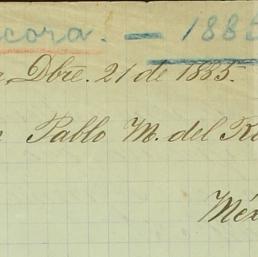 cora. — 1885
Dbre. 21 de 1885.
Pablo M. del R
Méx